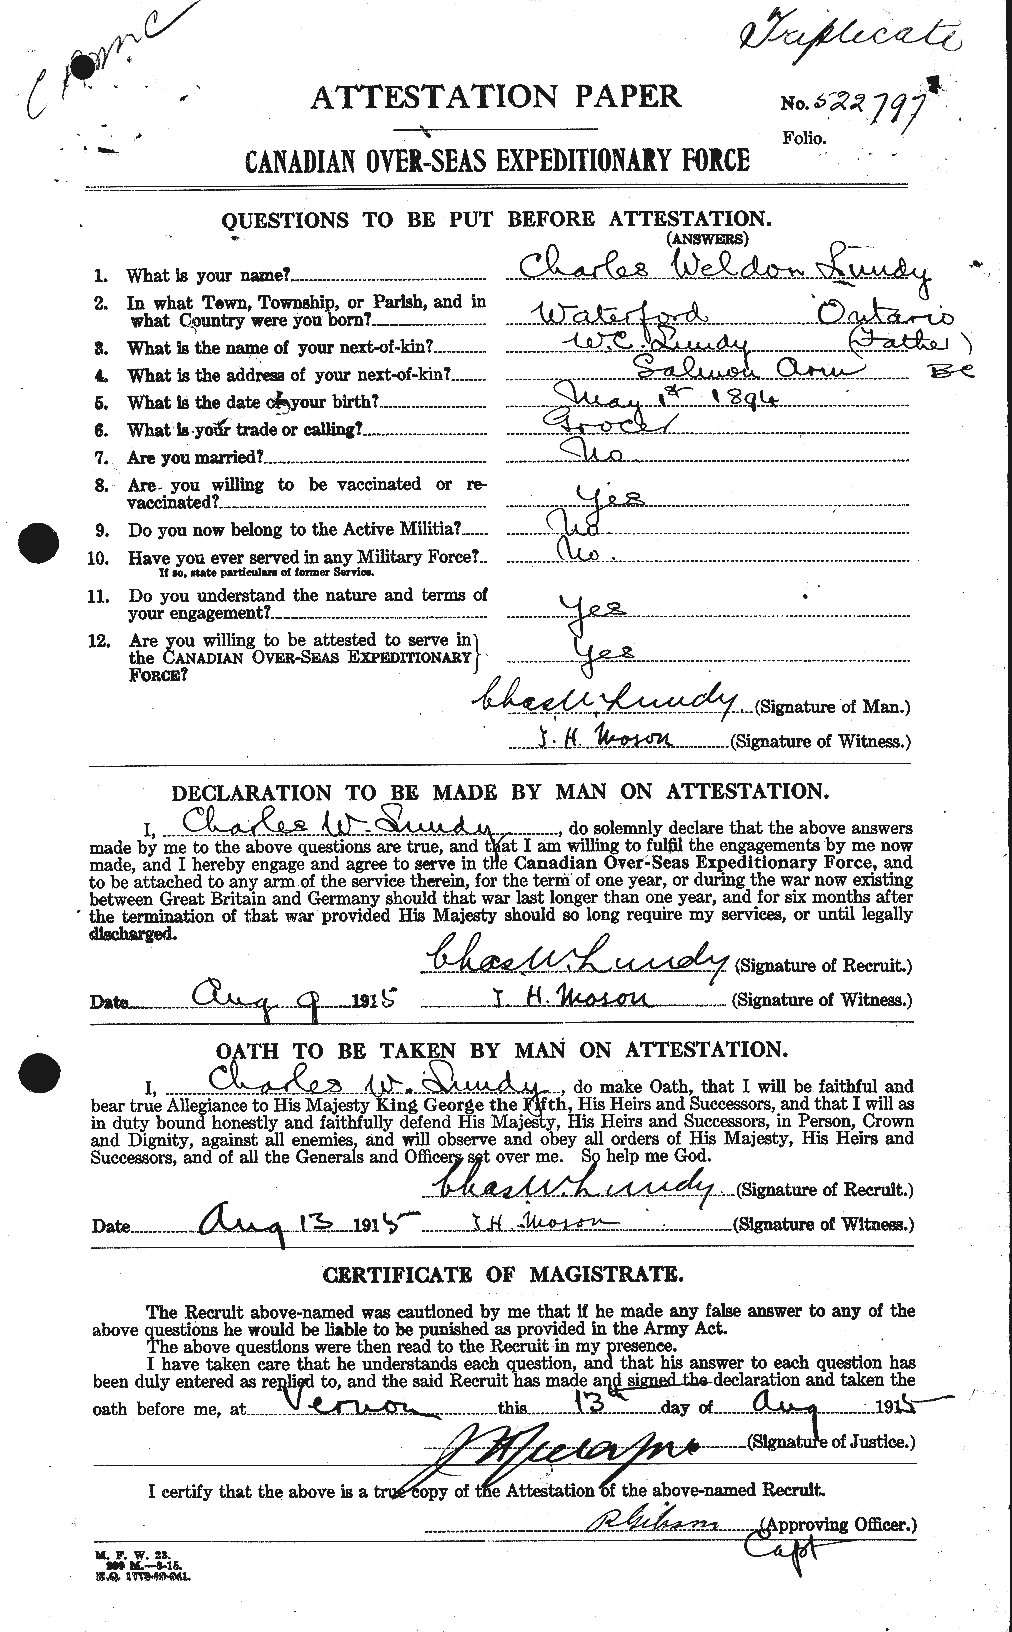 CAMC
Triplicate
ATTESTATION PAPER
No. 522797
Folio.
CANADIAN OVER-SEAS EXPEDITIONARY FORCE
QUESTIONS TO BE PUT BEFORE ATTESTATION.
(ANSWERS)
1. What is your name? Charles Weldon Lundy
2. In what Town, Township, or Parish, and in
what Country were you born? Waterford Ontario
3. What is the name of your next-of-kin? W.C. Lundy (Father)
4. What is the address of your next-of-kin? Salmon Arm BC
5. What is the date of your birth? May 1st 1894
6. What is your trade or calling? Grocer
7. Are you married? No
8. Are you willing to be vaccinated or re-
vaccinated? Yes
9. Do you now belong to the Active Militia? No
10. Have you ever served in any Military Force? No.
If so, state particulars of former Service.
11. Do you understand the nature and terms of
your engagement? Yes
12. Are you willing to be attested to serve in
the CANADIAN OVER-SEAS EXPEDITIONARY Yes
FORCE?
Chas W. Lundy (Signature of Man.)
J. H. Mason (Signature of Witness.)
DECLARATION TO BE MADE BY MAN ON ATTESTATION.
I, Charles W. Lundy, do solemnly declare that the above answers
made by me to the above questions are true, and that I am willing to fulfil the engagements by me now
made, and I hereby engage and agree to serve in the Canadian Over-Seas Expeditionary Force, and
to be attached to any arm of the service therein, for the term of one year, or during the war now existing
between Great Britain and Germany should that war last longer than one year, and for six months after
the termination of that war provided His Majesty should so long require my services, or until legally
discharged.
Chas W. Lundy (Signature of Recruit.)
Date Aug 9 1915 J. H. Mason (Signature of Witness.)
OATH TO BE TAKEN BY MAN ON ATTESTATION.
I, Charles W. Lundy, do make Oath, that I will be faithful and
bear true Allegiance to His Majesty King George the Fifth, His Heirs and Successors, and that I will as
in duty bound honestly and faithfully defend His Majesty, His Heirs and Successors, in Person, Crown
and Dignity, against all enemies, and will observe and obey all orders of His Majesty, His Heirs and
Successors, and of all the Generals and Officers set over me. So help me God.
Chas W. Lundy (Signature of Recruit.)
Date Aug 13 1915 J. H. Mason (Signature of Witness.)
CERTIFICATE OF MAGISTRATE.
The Recruit above-named was cautioned by me that if he made any false answer to any of the
above questions he would be liable to be punished as provided in the Army Act.
The above questions were then read to the Recruit in my presence.
I have taken care that he understands each question, and that his answer to each question has
been duly entered as replied to, and the said Recruit has made and signed the declaration and taken the
oath before me, at Vernon this 13th day of Aug 1915
(Signature of Justice.)
I certify that the above is a true copy of the Attestation of the above-named Recruit.
R Gibson (Approving Officer.)
Capt
M. F. W. 23.
200 M.—3-15.